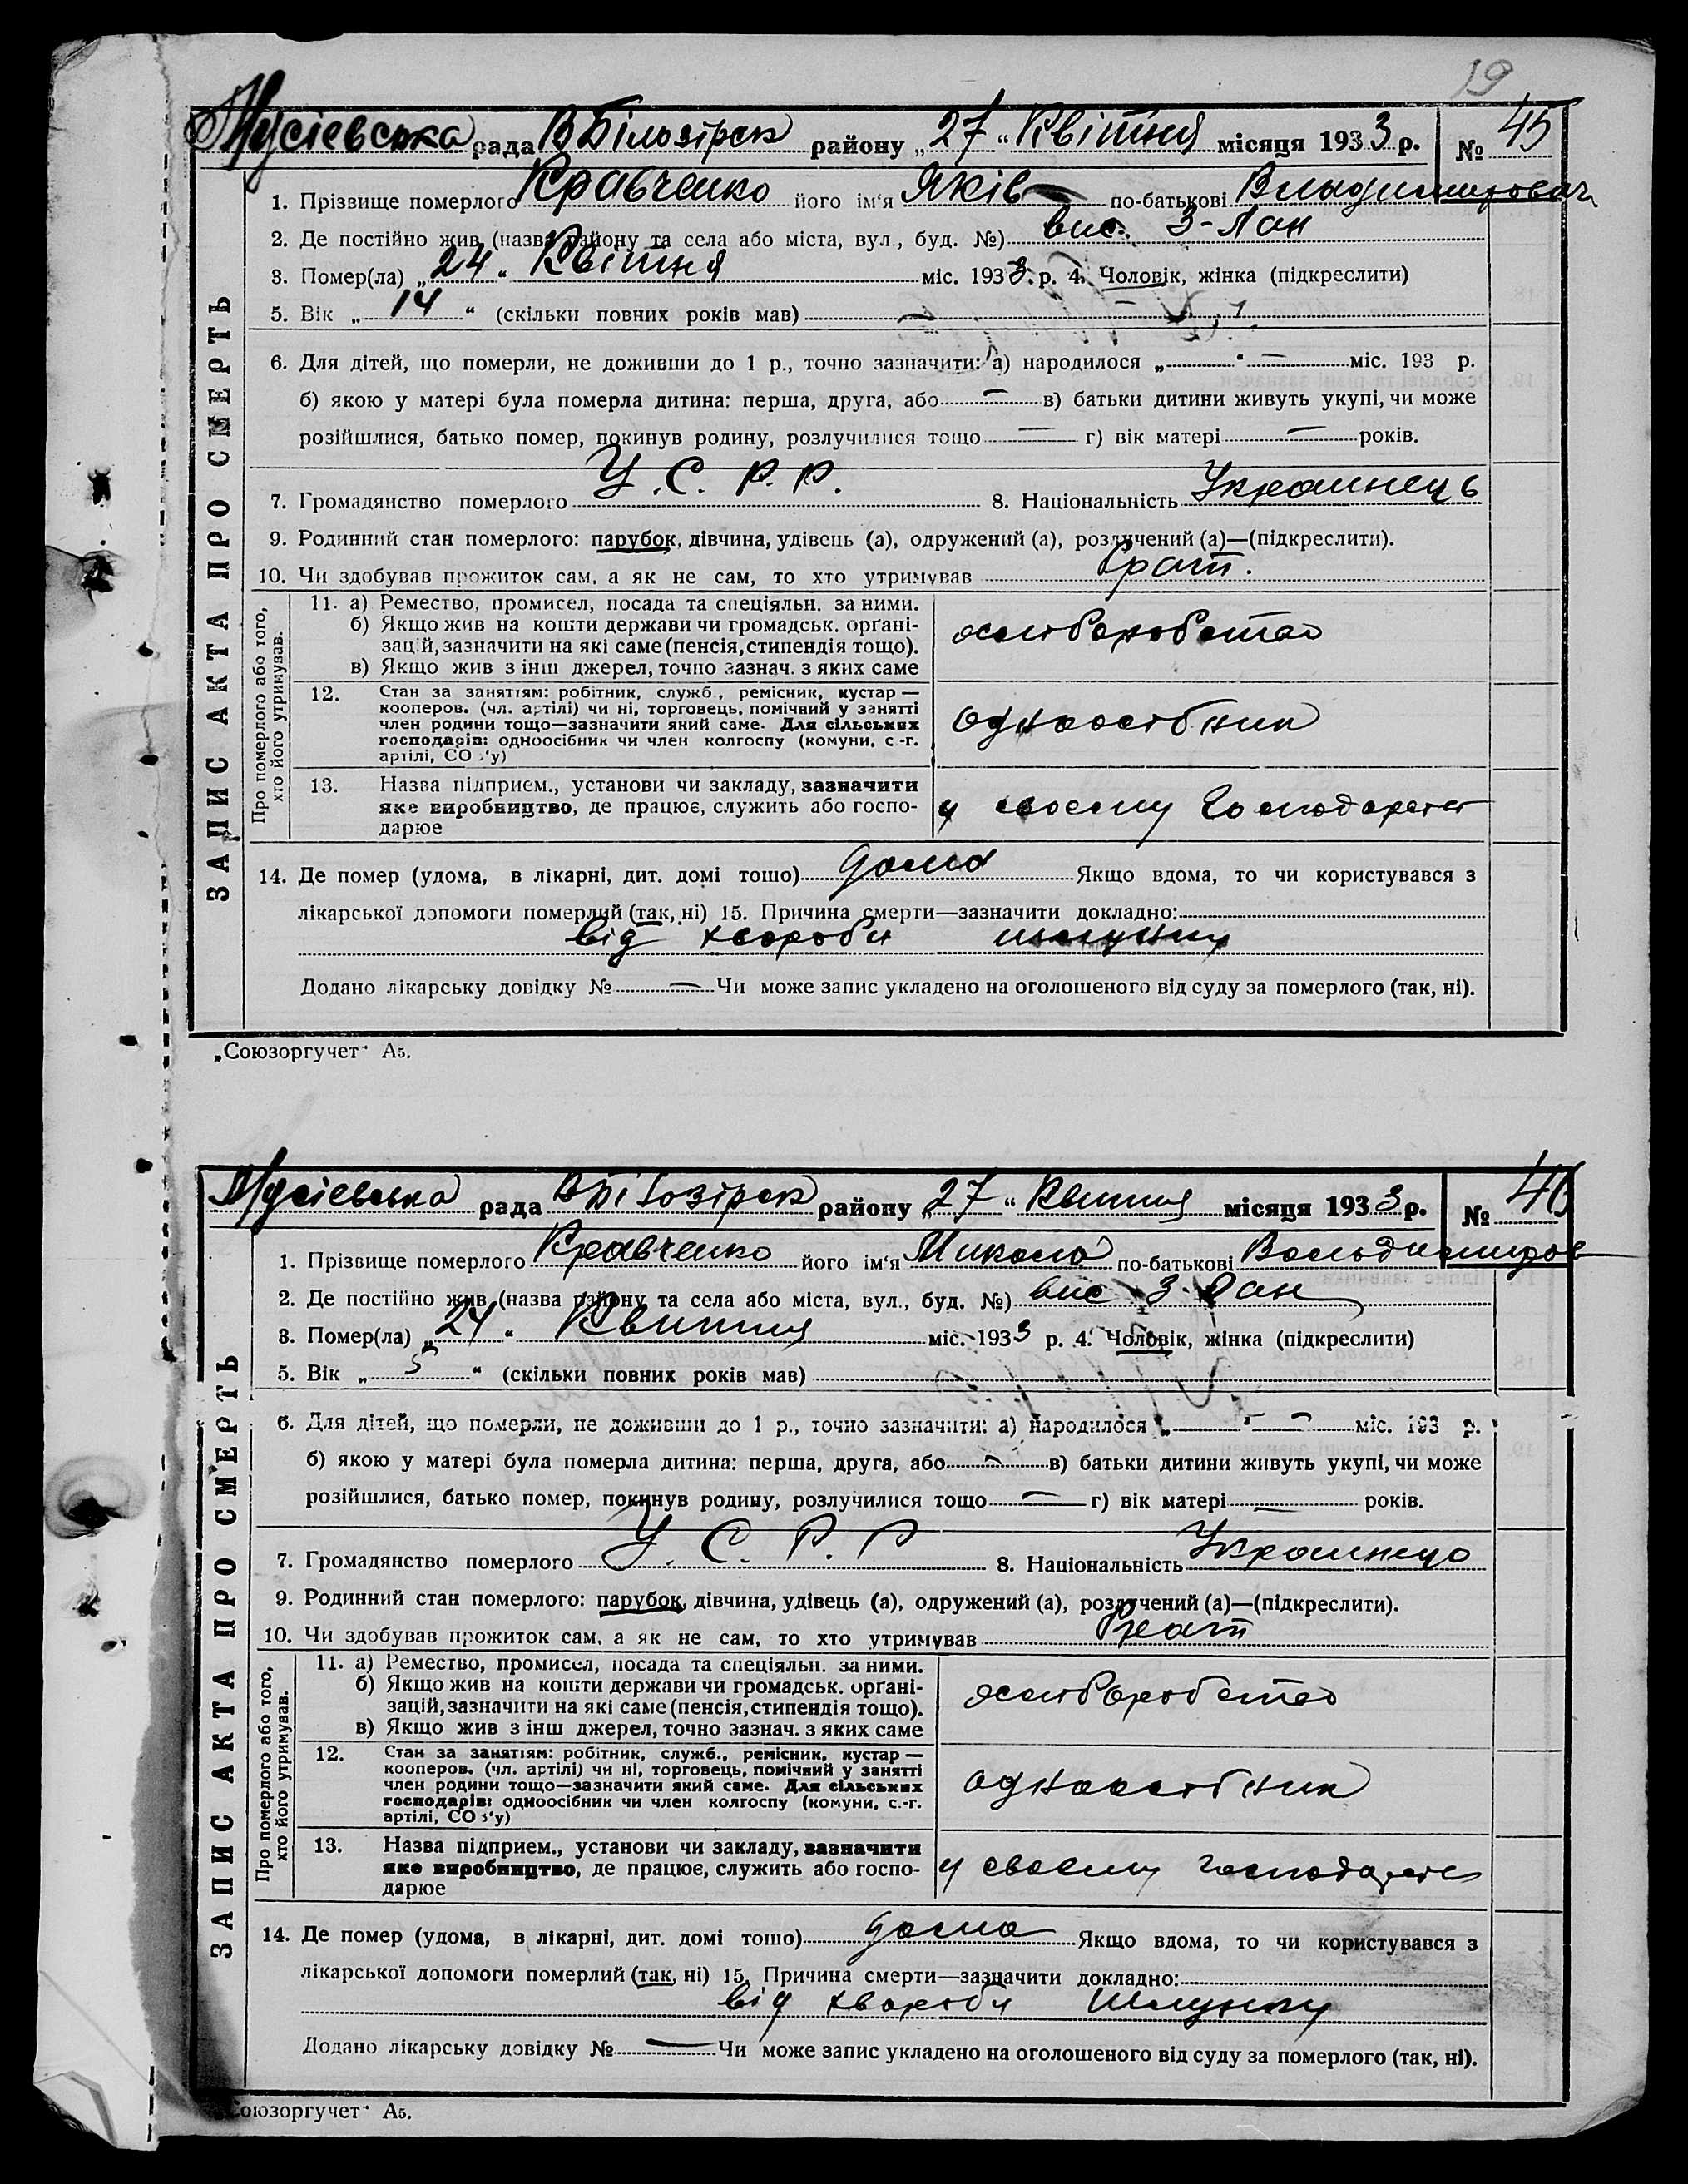 19
Мусіевська рада ВБілозірск району „27“ Квітня місяця 1933 р. № 45
ЗАПИС АКТА ПРО СМЕРТЬ
1. Прізвище померлого Кравченко його ім‘я Яків по-батькові Владимирович
2. Де постійно жив (назва району та села або міста, вул., буд. №) вис. 3-Лан
3. Помер(ла) „24“ Квітня міс. 1933 р. 4. Чоловік, жінка (підкреслити)
5. Вік „14“ (скільки повних років мав)
6. Для дітей, що померли, не доживши до 1 р., точно зазначити: а) народилося „ “ — міс. 193 р.
б) якою у матері була померла дитина: перша, друга, або — в) батьки дитини живуть укупі, чи може
розійшлися, батько помер, покинув родину, розлучилися тощо — г) вік матері — років.
7. Громадянство померлого У.С.Р.Р. 8. Національність Украинець
9. Родинний стан померлого: парубок, дівчина, удівець (а), одружений (а), розлучений (а)—(підкреслити).
10. Чи здобував прожиток сам, а як не сам, то хто утримував брат.
Про померлого або того, хто його утримував.
11. а) Ремество, промисел, посада та спеціяльн. за ними.
б) Якщо жив на кошти держави чи громадськ. орґані-
зацій, зазначити на які саме (пенсія, стипендія тощо).
в) Якщо жив з інш джерел, точно зазнач. з яких саме
12. Стан за заняттям: робітник, служб., ремісник, кустар —
кооперов. (чл. артілі) чи ні, торговець, помічний у занятті
член родини тощо—зазначити який саме. Для сільських
господарів: одноосібник чи член колгоспу (комуни, с.-г.
артілі, СО з‘у)
одноосібник
13. Назва підприєм., установи чи закладу, зазначити
яке виробництво, де працює, служить або госпо-
дарюе
у своєму
14. Де помер (удома, в лікарні, дит. домі тошо) дома Якщо вдома, то чи користувався з
лікарської допомоги померлий (так, ні) 15. Причина смерти—зазначити докладно:
від хвороби шлунку
Додано лікарську довідку № — Чи може запис укладено на оголошеного від суду за померлого (так, ні).
„Союзоргучет“ А5.
Мусіевська рада ВБілозірск району „27“ Квитня місяця 1933 р. № 46
ЗАПИС АКТА ПРО СМЕРТЬ
1. Прізвище померлого Кравченко його ім‘я Микола по-батькові Вольдимиров
2. Де постійно жив (назва району та села або міста, вул., буд. №) вис 3-Лан
3. Помер(ла) „24“ Квитня міс. 1933 р. 4. Чоловік, жінка (підкреслити)
5. Вік „5“ (скільки повних років мав)
6. Для дітей, що померли, не доживши до 1 р., точно зазначити: а) народилося „ “ — міс. 193 р.
б) якою у матері була померла дитина: перша, друга, або — в) батьки дитини живуть укупі, чи може
розійшлися, батько помер, покинув родину, розлучилися тощо — г) вік матері — років.
7. Громадянство померлого У.С.Р.Р 8. Національність Украинець
9. Родинний стан померлого: парубок, дівчина, удівець (а), одружений (а), розлучений (а)—(підкреслити).
10. Чи здобував прожиток сам, а як не сам, то хто утримував брат
Про померлого або того, хто його утримував.
11. а) Ремество, промисел, посада та спеціяльн. за ними.
б) Якщо жив на кошти держави чи громадськ. орґані-
зацій, зазначити на які саме (пенсія, стипендія тощо).
в) Якщо жив з інш джерел, точно зазнач. з яких саме
12. Стан за заняттям: робітник, служб., ремісник, кустар —
кооперов. (чл. артілі) чи ні, торговець, помічний у занятті
член родини тощо—зазначити який саме. Для сільських
господарів: одноосібник чи член колгоспу (комуни, с.-г.
артілі, СО з‘у)
одноосібник
13. Назва підприєм., установи чи закладу, зазначити
яке виробництво, де працює, служить або госпо-
дарюе
у своєму
14. Де помер (удома, в лікарні, дит. домі тошо) дома Якщо вдома, то чи користувався з
лікарської допомоги померлий (так, ні) 15. Причина смерти—зазначити докладно:
від хвороби шлунку
Додано лікарську довідку № — Чи може запис укладено на оголошеного від суду за померлого (так, ні).
Союзоргучет“ А5.